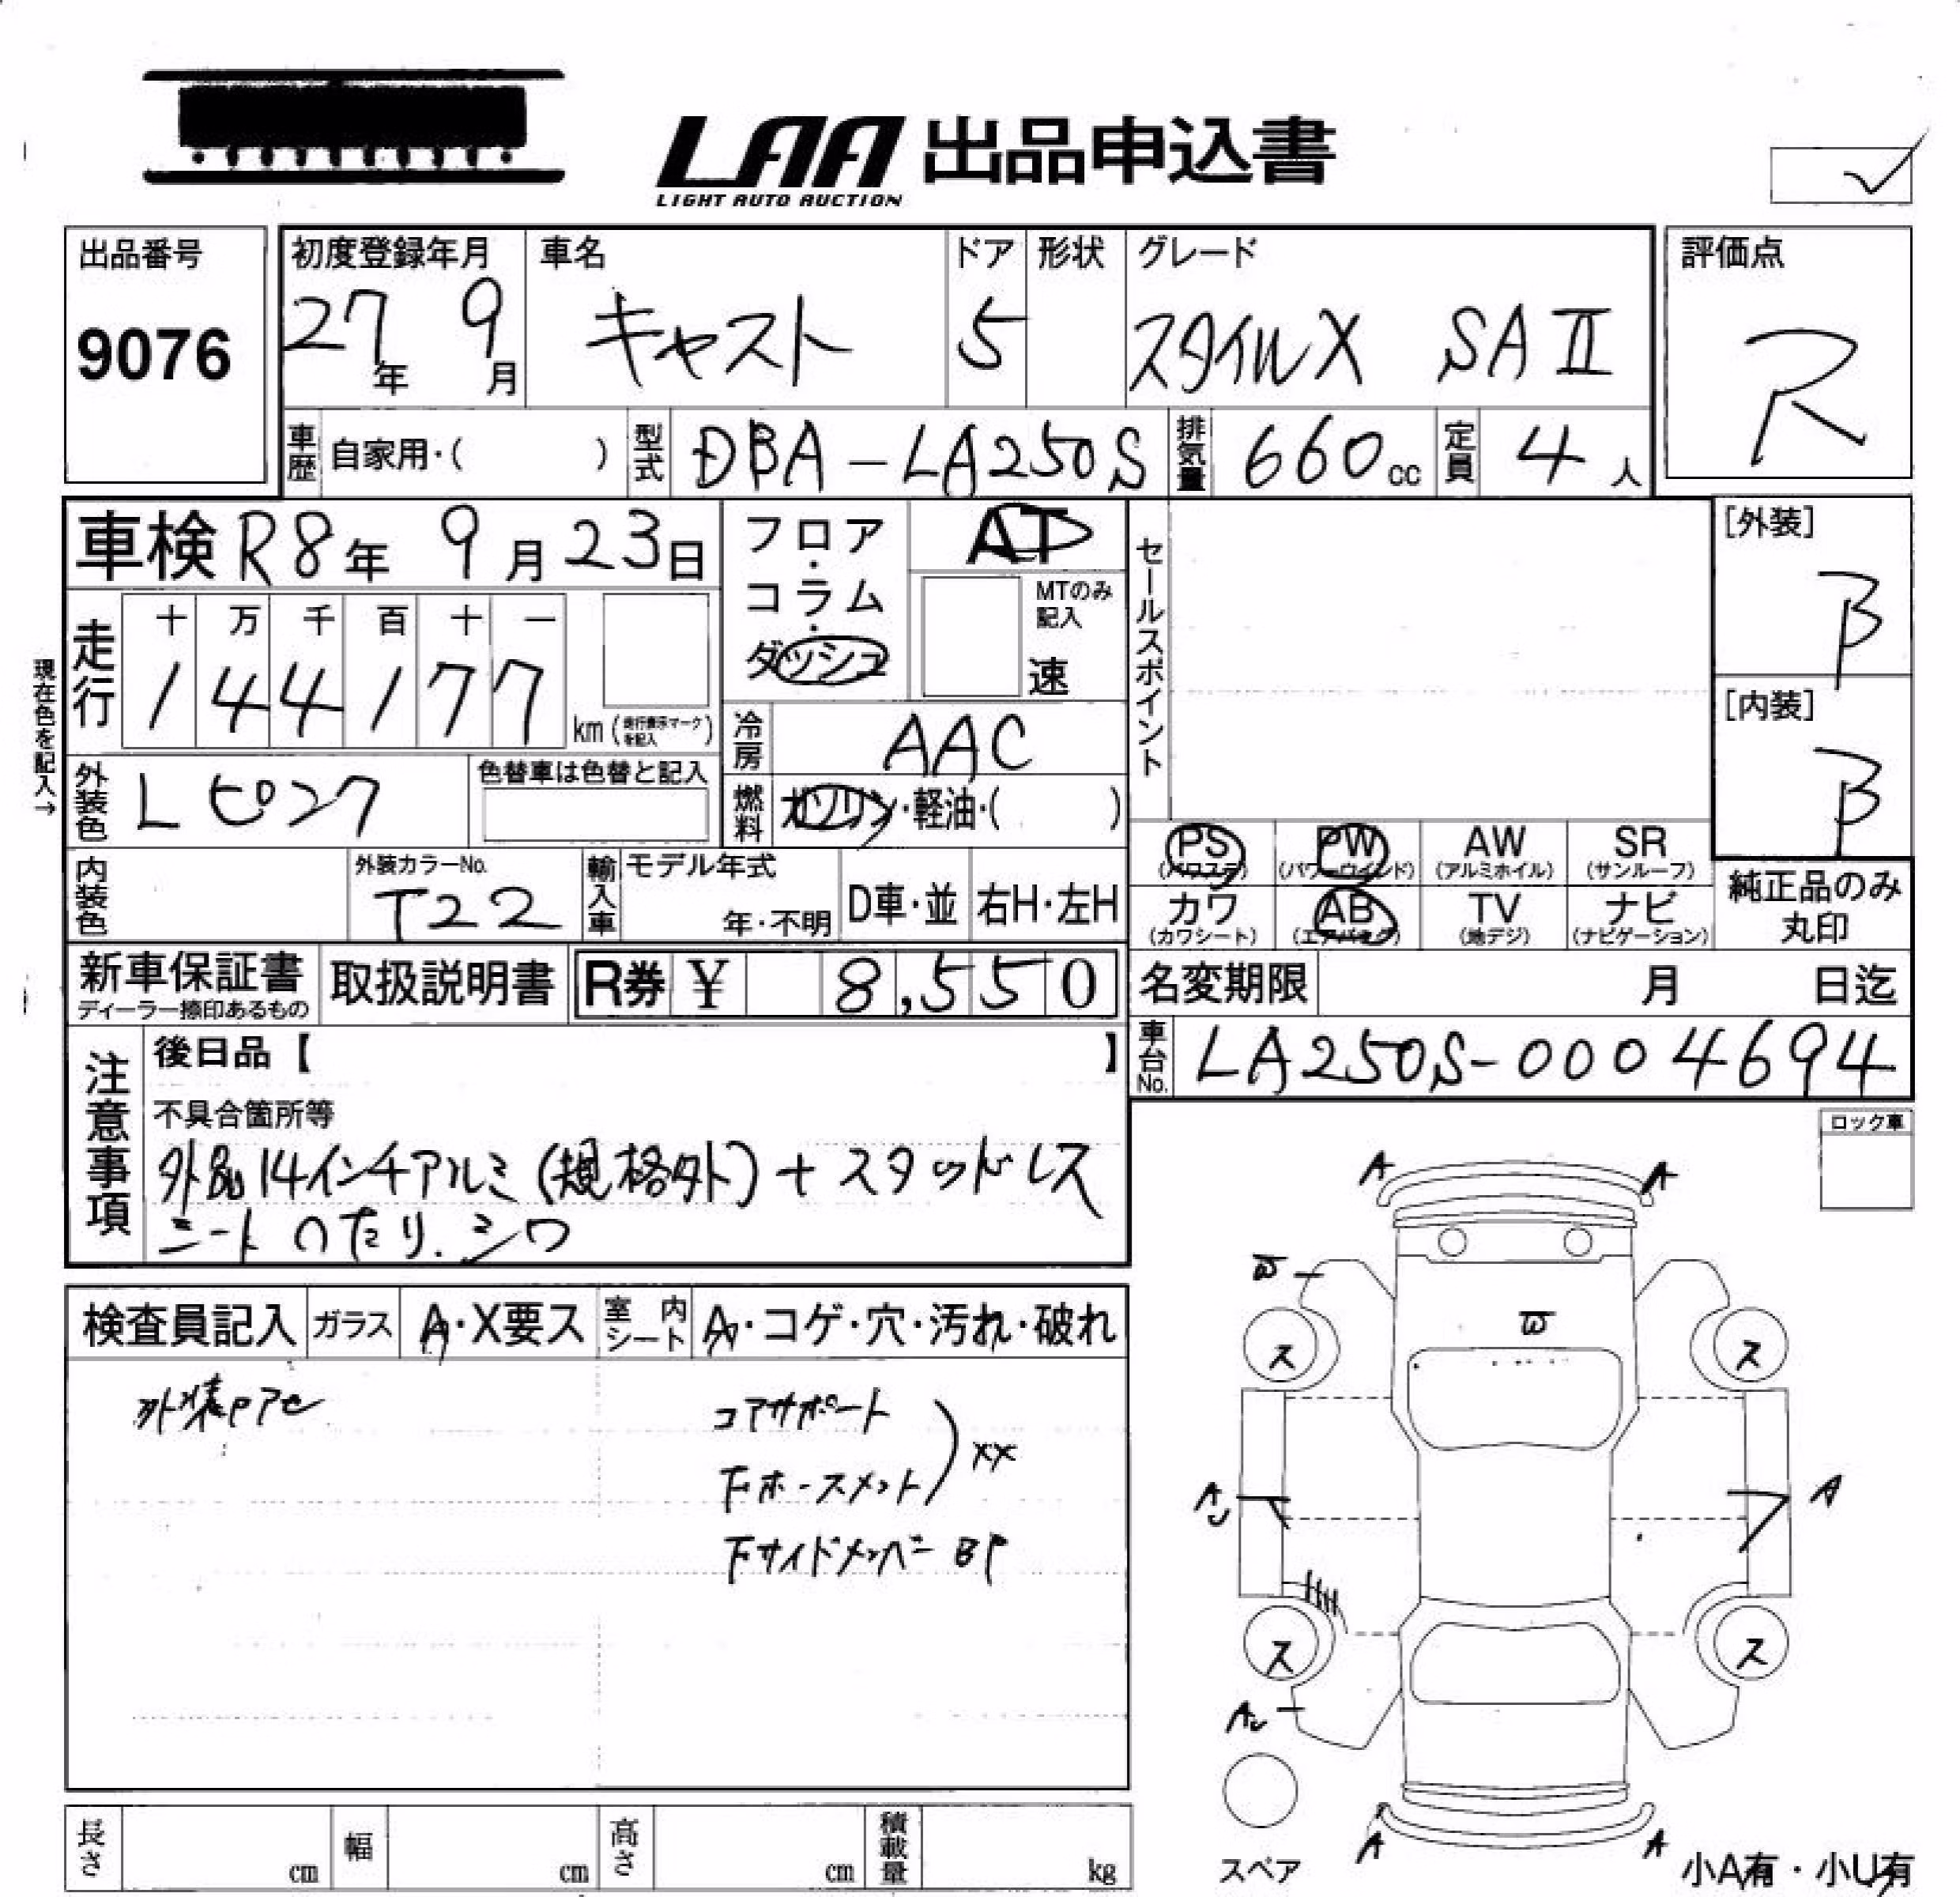 LAA 出品申込書
LIGHT AUTO AUCTION
出品番号
9076
初度登録年月
27年 9月
車名
キャスト
ドア
5
形状
グレード
スタイルX SAⅡ
評価点
R
車歴 自家用・( )
型式 DBA-LA250S
排気量 660cc
定員 4人
車検 R8年 9月23日
フロア・コラム・ダッシュ
AT
MTのみ記入
速
セールスポイント
[外装]
B
[内装]
B
現在色を記入→
走行
十 万 千 百 十 一
1 4 4 1 7 7
km (走行表示マークを記入)
冷房 AAC
外装色 Lピンク
色替車は色替と記入
燃料 ガソリン・軽油・( )
PS (パワステ)
PW (パワーウインド)
AW (アルミホイル)
SR (サンルーフ)
カワ (カワシート)
AB (エアバッグ)
TV (地デジ)
ナビ (ナビゲーション)
純正品のみ丸印
内装色
外装カラーNo.
T22
輸入車
モデル年式
年・不明
D車・並
右H・左H
新車保証書
ディーラー捺印あるもの
取扱説明書
R券 ¥ 8,550
名変期限 月 日迄
車台No. LA250S-0004694
注意事項
後日品【 】
不具合箇所等
外品14インチアルミ(規格外)+スタッドレス
シートヘたり.シワ
ロック車
検査員記入
ガラス A・X要ス
室内シート A・コゲ・穴・汚れ・破れ
コアサポート
Fホースメント
XX
Fサイドメンバー BP
A A
W
W
ス ス
A
ス ス
A A
スペア
小A有・小U有
長さ cm
幅 cm
高さ cm
積載量 kg